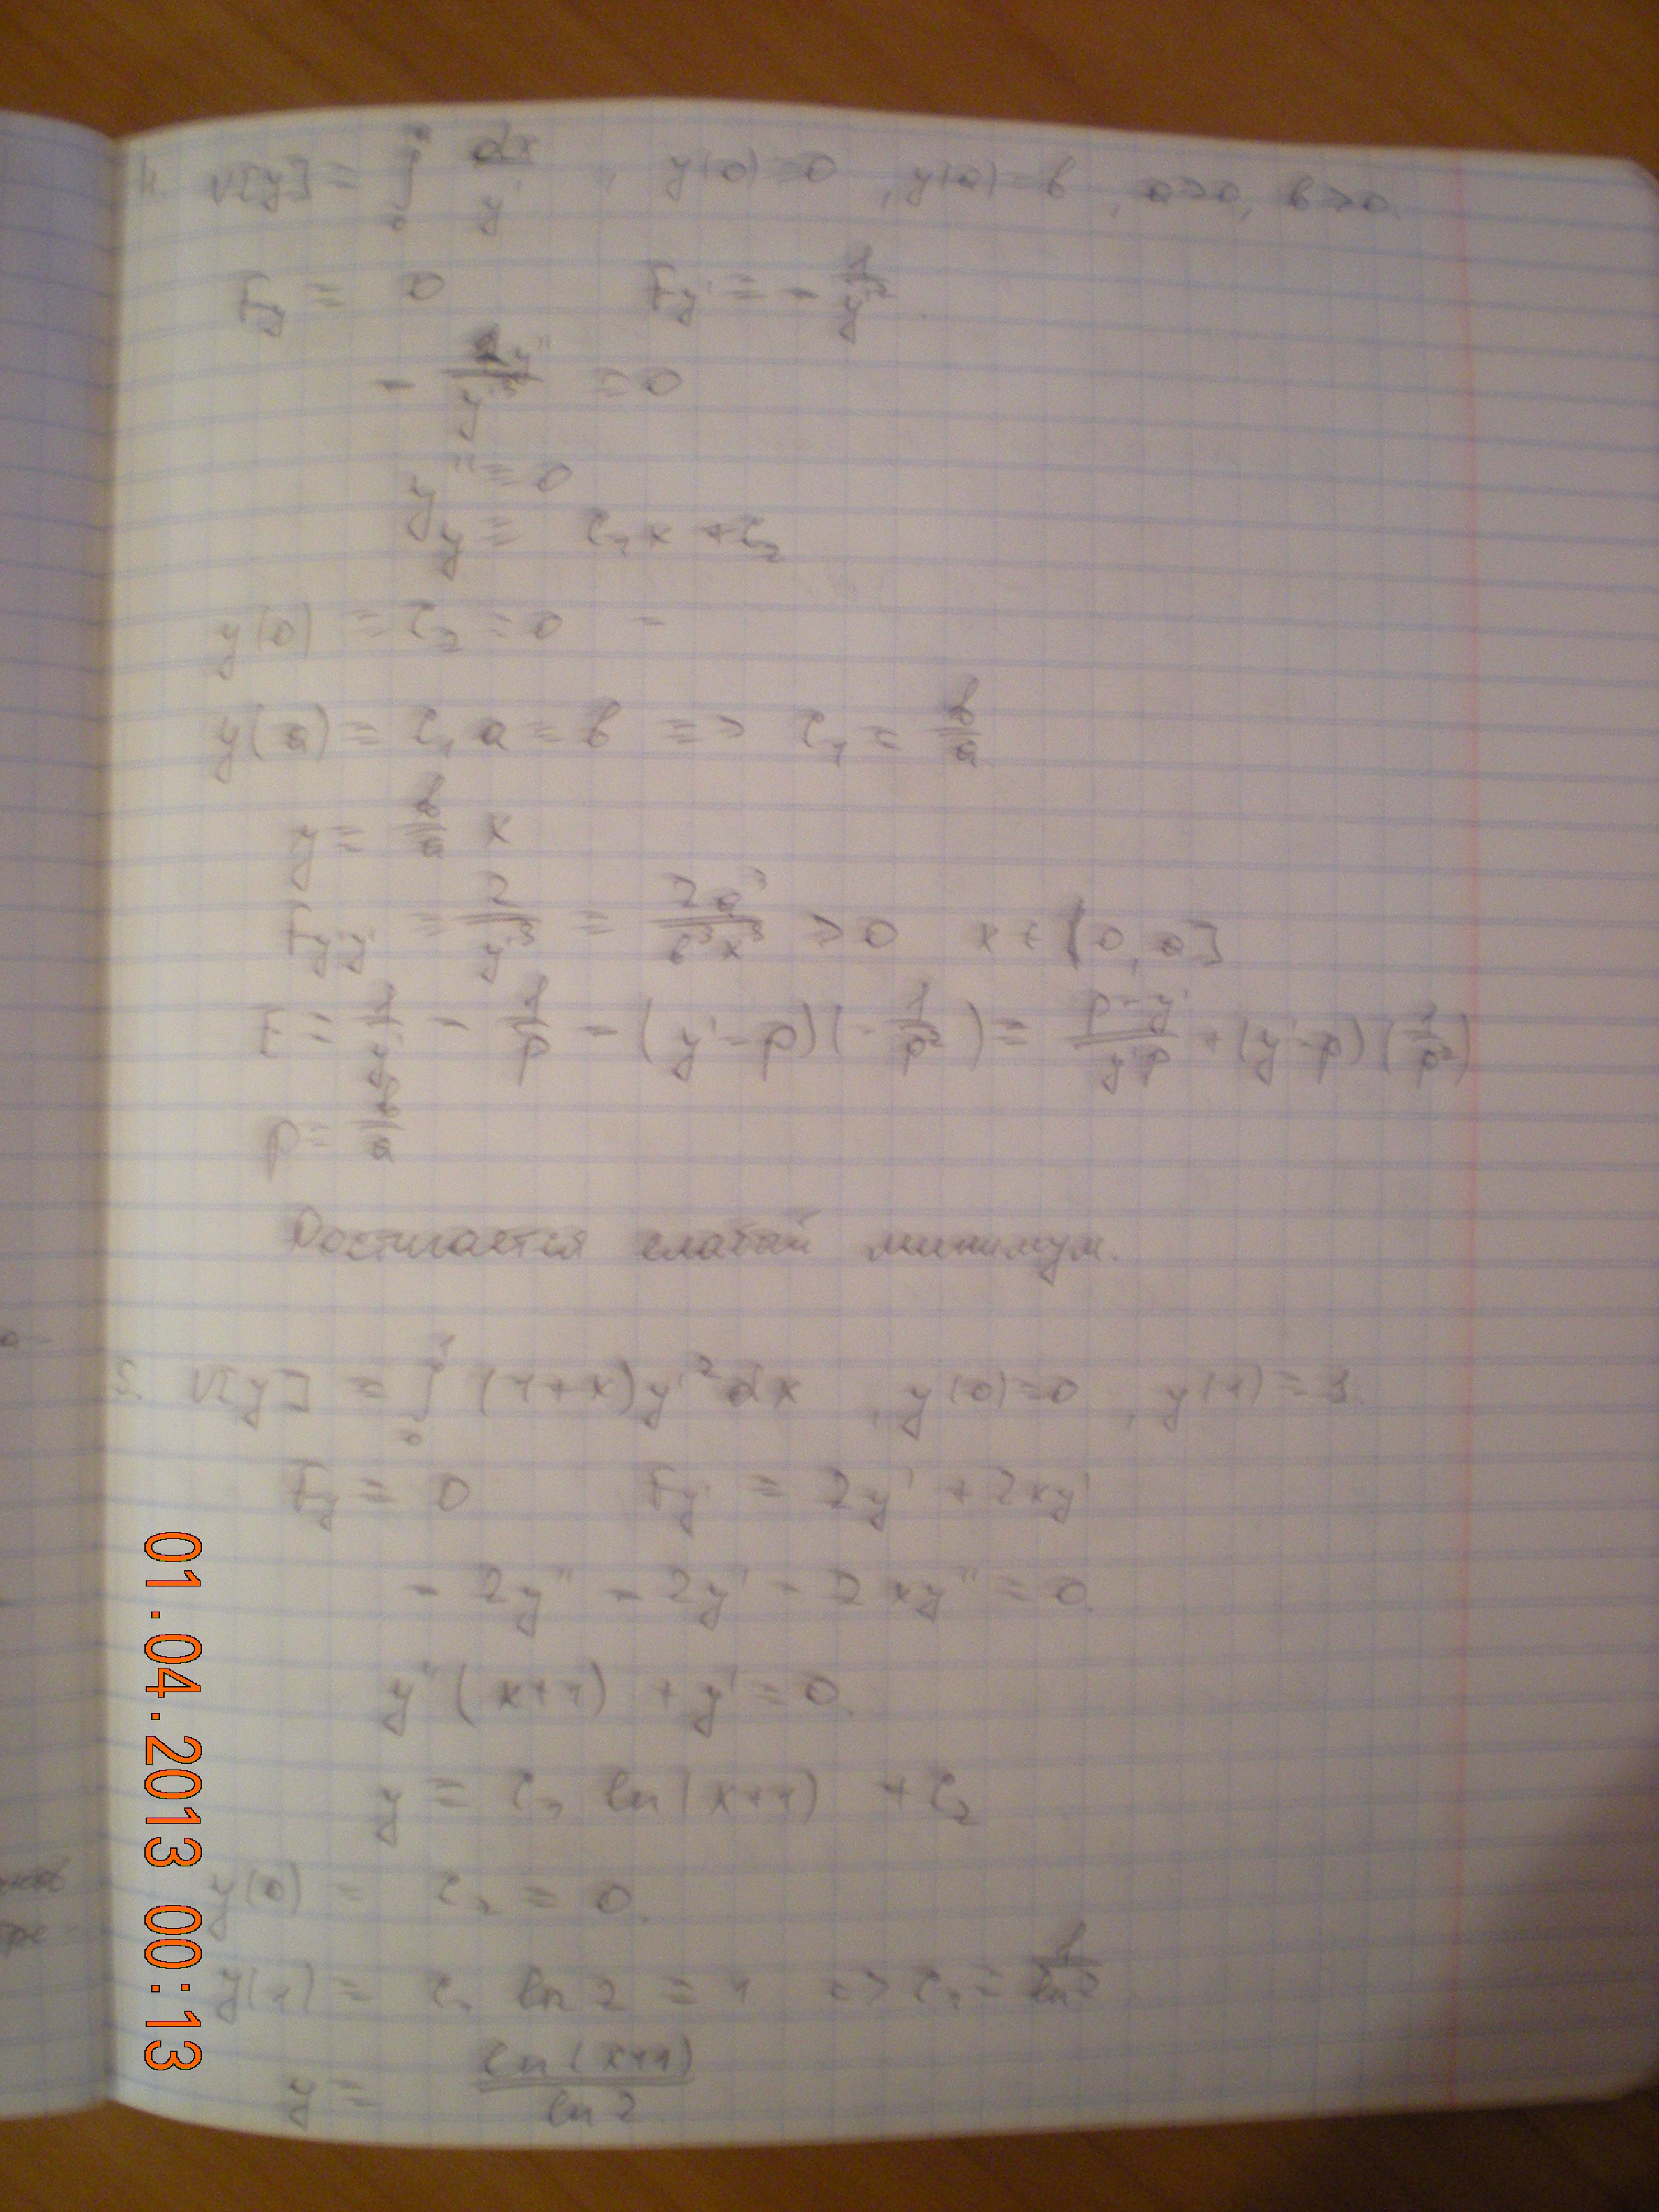 4. V[y] = ∫₀ᵃ dx/y' , y(0)=0 , y(a)=b , a>0, b>0.
F_y = 0 F_y' = - 1/y'²
- 2y''/y'³ = 0
y'' = 0
y = C₁x + C₂
y(0) = C₂ = 0 -
y(a) = C₁a = b => C₁ = b/a
y = b/a x
F_y'y' = 2/y'³ = 2a³/b³x³ > 0 x ∈ [0, a]
E = 1/y' - 1/p - (y'-p)(-1/p²) = p-y'/y'p + (y'-p)(1/p²)
p = b/a
Достигается слабый минимум.
5. V[y] = ∫₀¹ (1+x)y'²dx , y(0)=0 , y(1)=1.
F_y = 0 F_y' = 2y' + 2xy'
- 2y'' - 2y' - 2xy'' = 0.
y''(x+1) + y' = 0.
y = C₁ ln(x+1) + C₂
y(0) = C₂ = 0.
y(1) = C₁ ln 2 = 1 => C₁ = 1/ln2
y = ln(x+1)/ln 2
01.04.2013 00:13